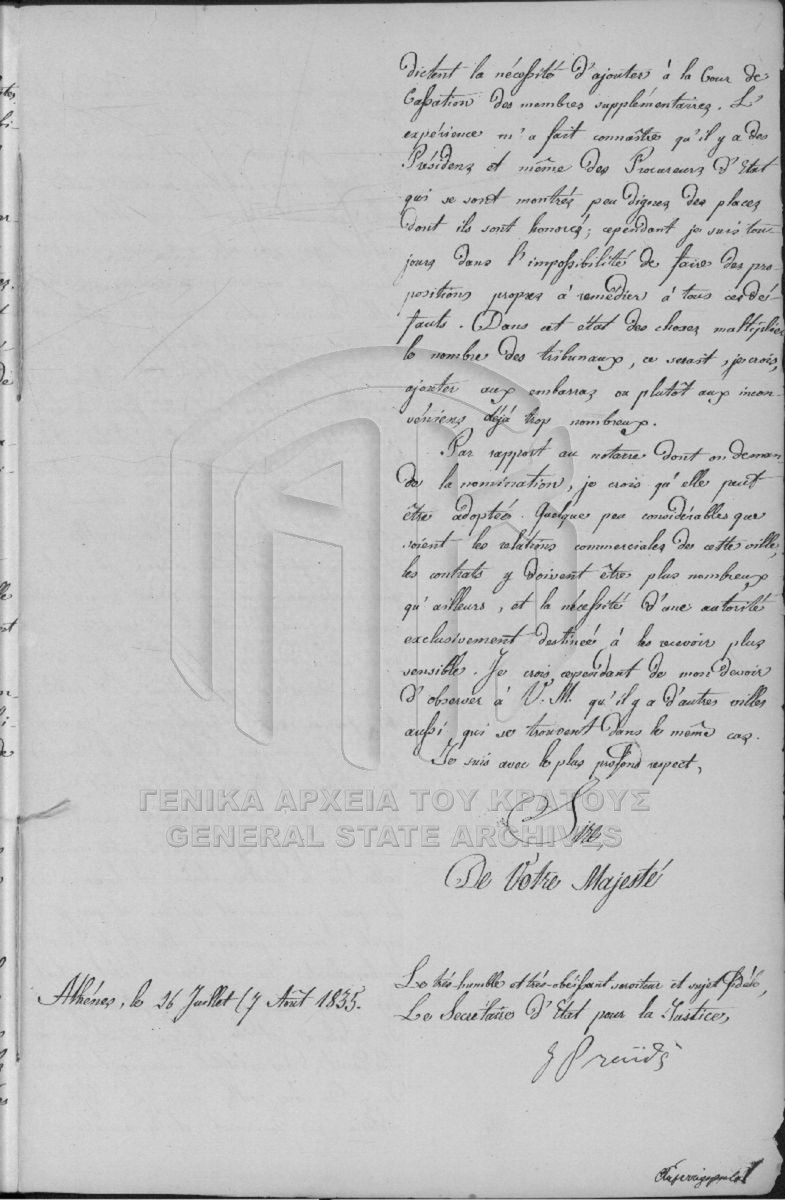 dictent la nécessité d'ajouter à la Cour de
Cassation des membres supplémentaires. L'
expérience m'a fait connaître qu'il y a des
Présidens et même des Procureurs d'Etat
qui se sont montrés peu dignes des places
dont ils sont honorés; cependant je suis tou-
jours dans l'impossibilité de faire des pro-
positions propres à remédier à tous ces dé-
fauts. Dans cet état des choses multiplier
le nombre des tribunaux, ce serait, je crois,
ajouter aux embarras ou plutôt aux incon-
véniens déjà trop nombreux.
Par rapport au notaire dont on deman-
de la nomination, je crois qu'elle peut
être adoptée. Quelque peu considérables que
soient les relations commerciales de cette ville,
les contrats y doivent être plus nombreux
qu'ailleurs, et la nécessité d'une autorité
exclusivement destinée à les recevoir plus
sensible. Je crois cependant de mon devoir
d'observer à V. M. qu'il y a d'autres villes
aussi qui se trouvent dans le même cas.
Je suis avec le plus profond respect,
ΓΕΝΙΚΑ ΑΡΧΕΙΑ ΤΟΥ ΚΡΑΤΟΥΣ
GENERAL STATE ARCHIVES
Sire,
De Votre Majesté
Le très-humble et très-obéissant serviteur et sujet fidèle,
Athénes, le 26 Juillet / 7 Août 1835.
Le Secrétaire d'Etat pour la Justice,